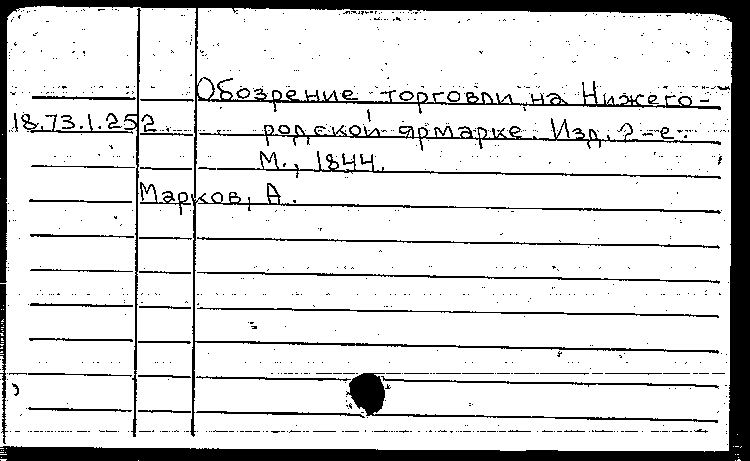 Обозрение торговли на Нижего-
18.73.1.252 родской ярмарке. Изд. 2-е.
М., 1844.
Марков, А.